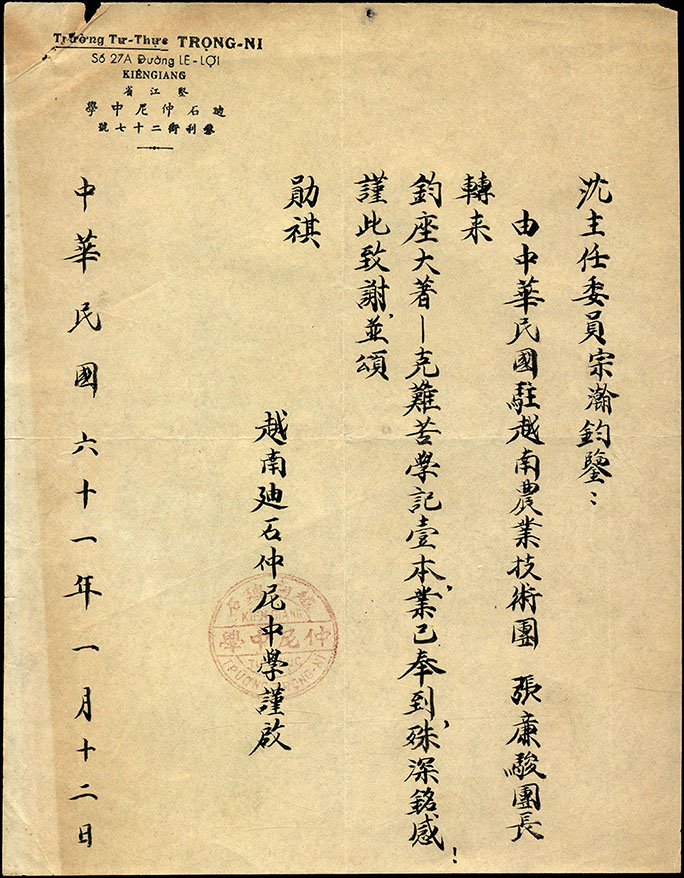 Trường Tư-Thục TRỌNG-NI
Số 27A Đường LE-LỢI
KIÊNGIANG
省江堅
學中尼仲石迪
號七十二街利黎
沈主任委員宗瀚鈞鑒：
由中華民國駐越南農業技術團 張廉駿團長
轉來
鈞座大著—克難苦學記壹本，業已奉到，殊深銘感！
謹此致謝，並頌
勛祺
越南迪石仲尼中學謹啟
中華民國六十一年一月十二日
KIENGIANG
學中尼仲